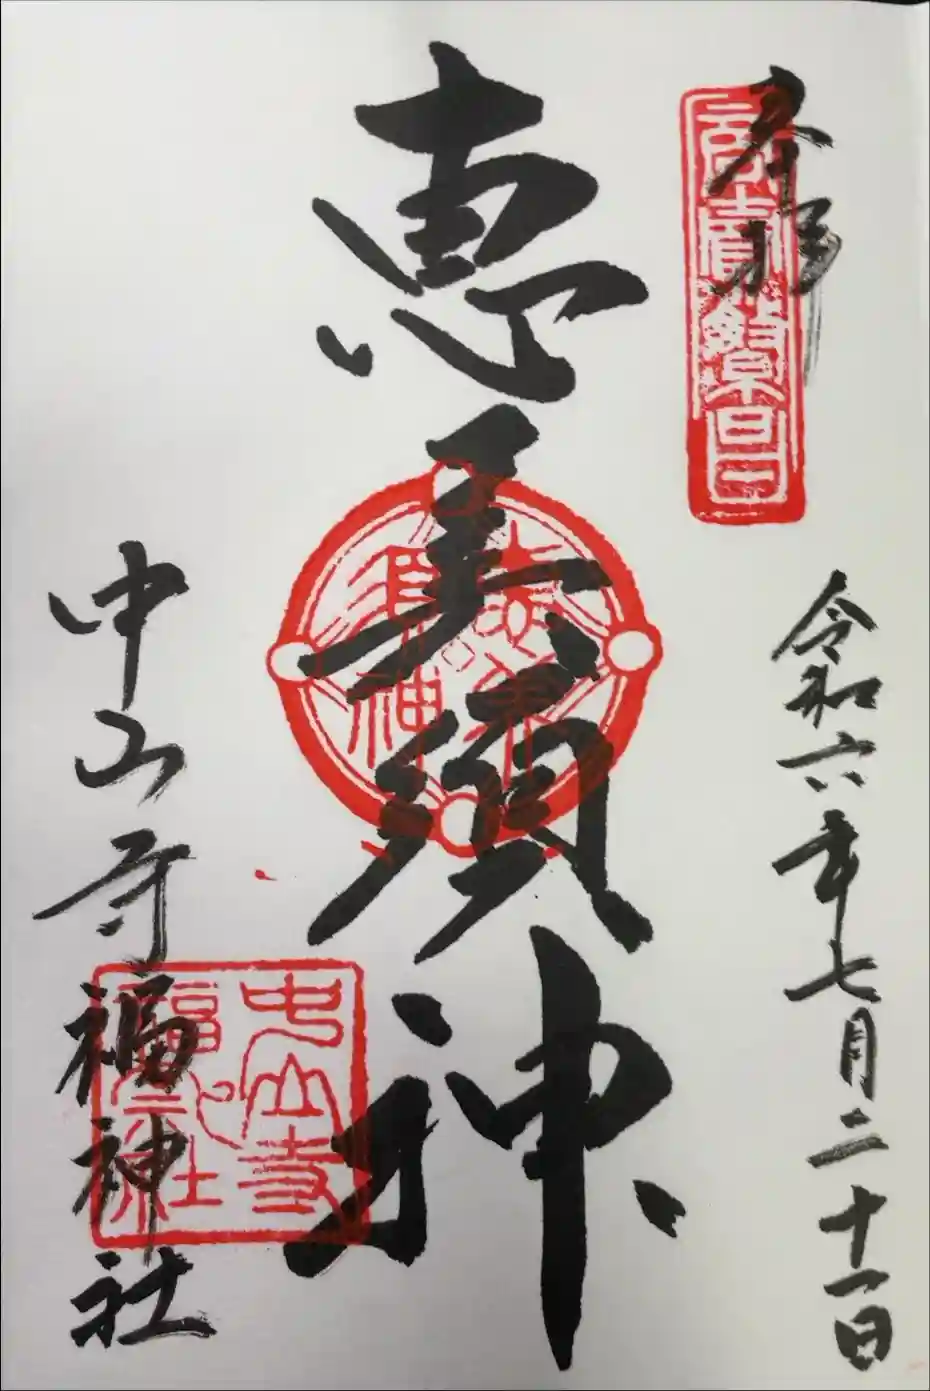 奉拝
令和六年七月二十一日
恵美須神
中山寺福神社
中山寺
福神社